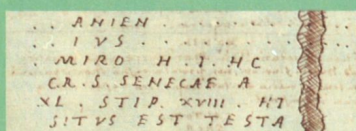 . . ANIEN . .
. . IVS . . . . .
. MIRO H . I . HC
C.R. S. SENECAE A
XL . STIP. XVIII . HI
SITVS EST TESTA